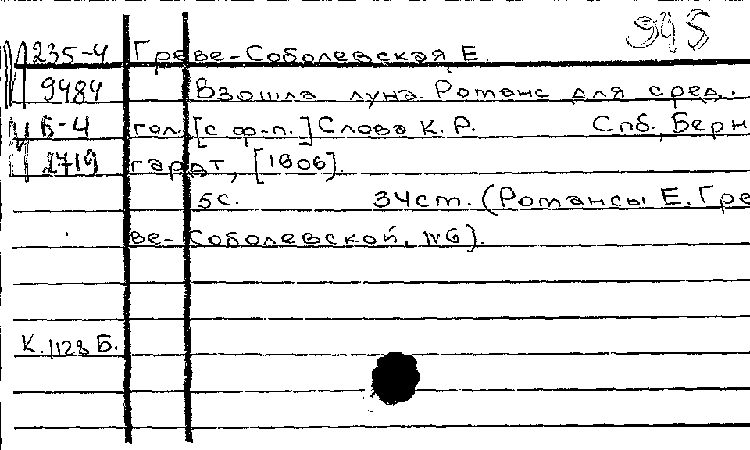 995
235-4 Греве-Соболевская Е.
9484 Взошла луна. Романс для сред.
Б-4 гол. [с ф-п.] Слова К. Р. Спб., Берн
2719 гардт, [1906].
5 с. 34 ст. (Романсы Е. Гре
ве-Соболевской, №6).
К. 1128 Б.